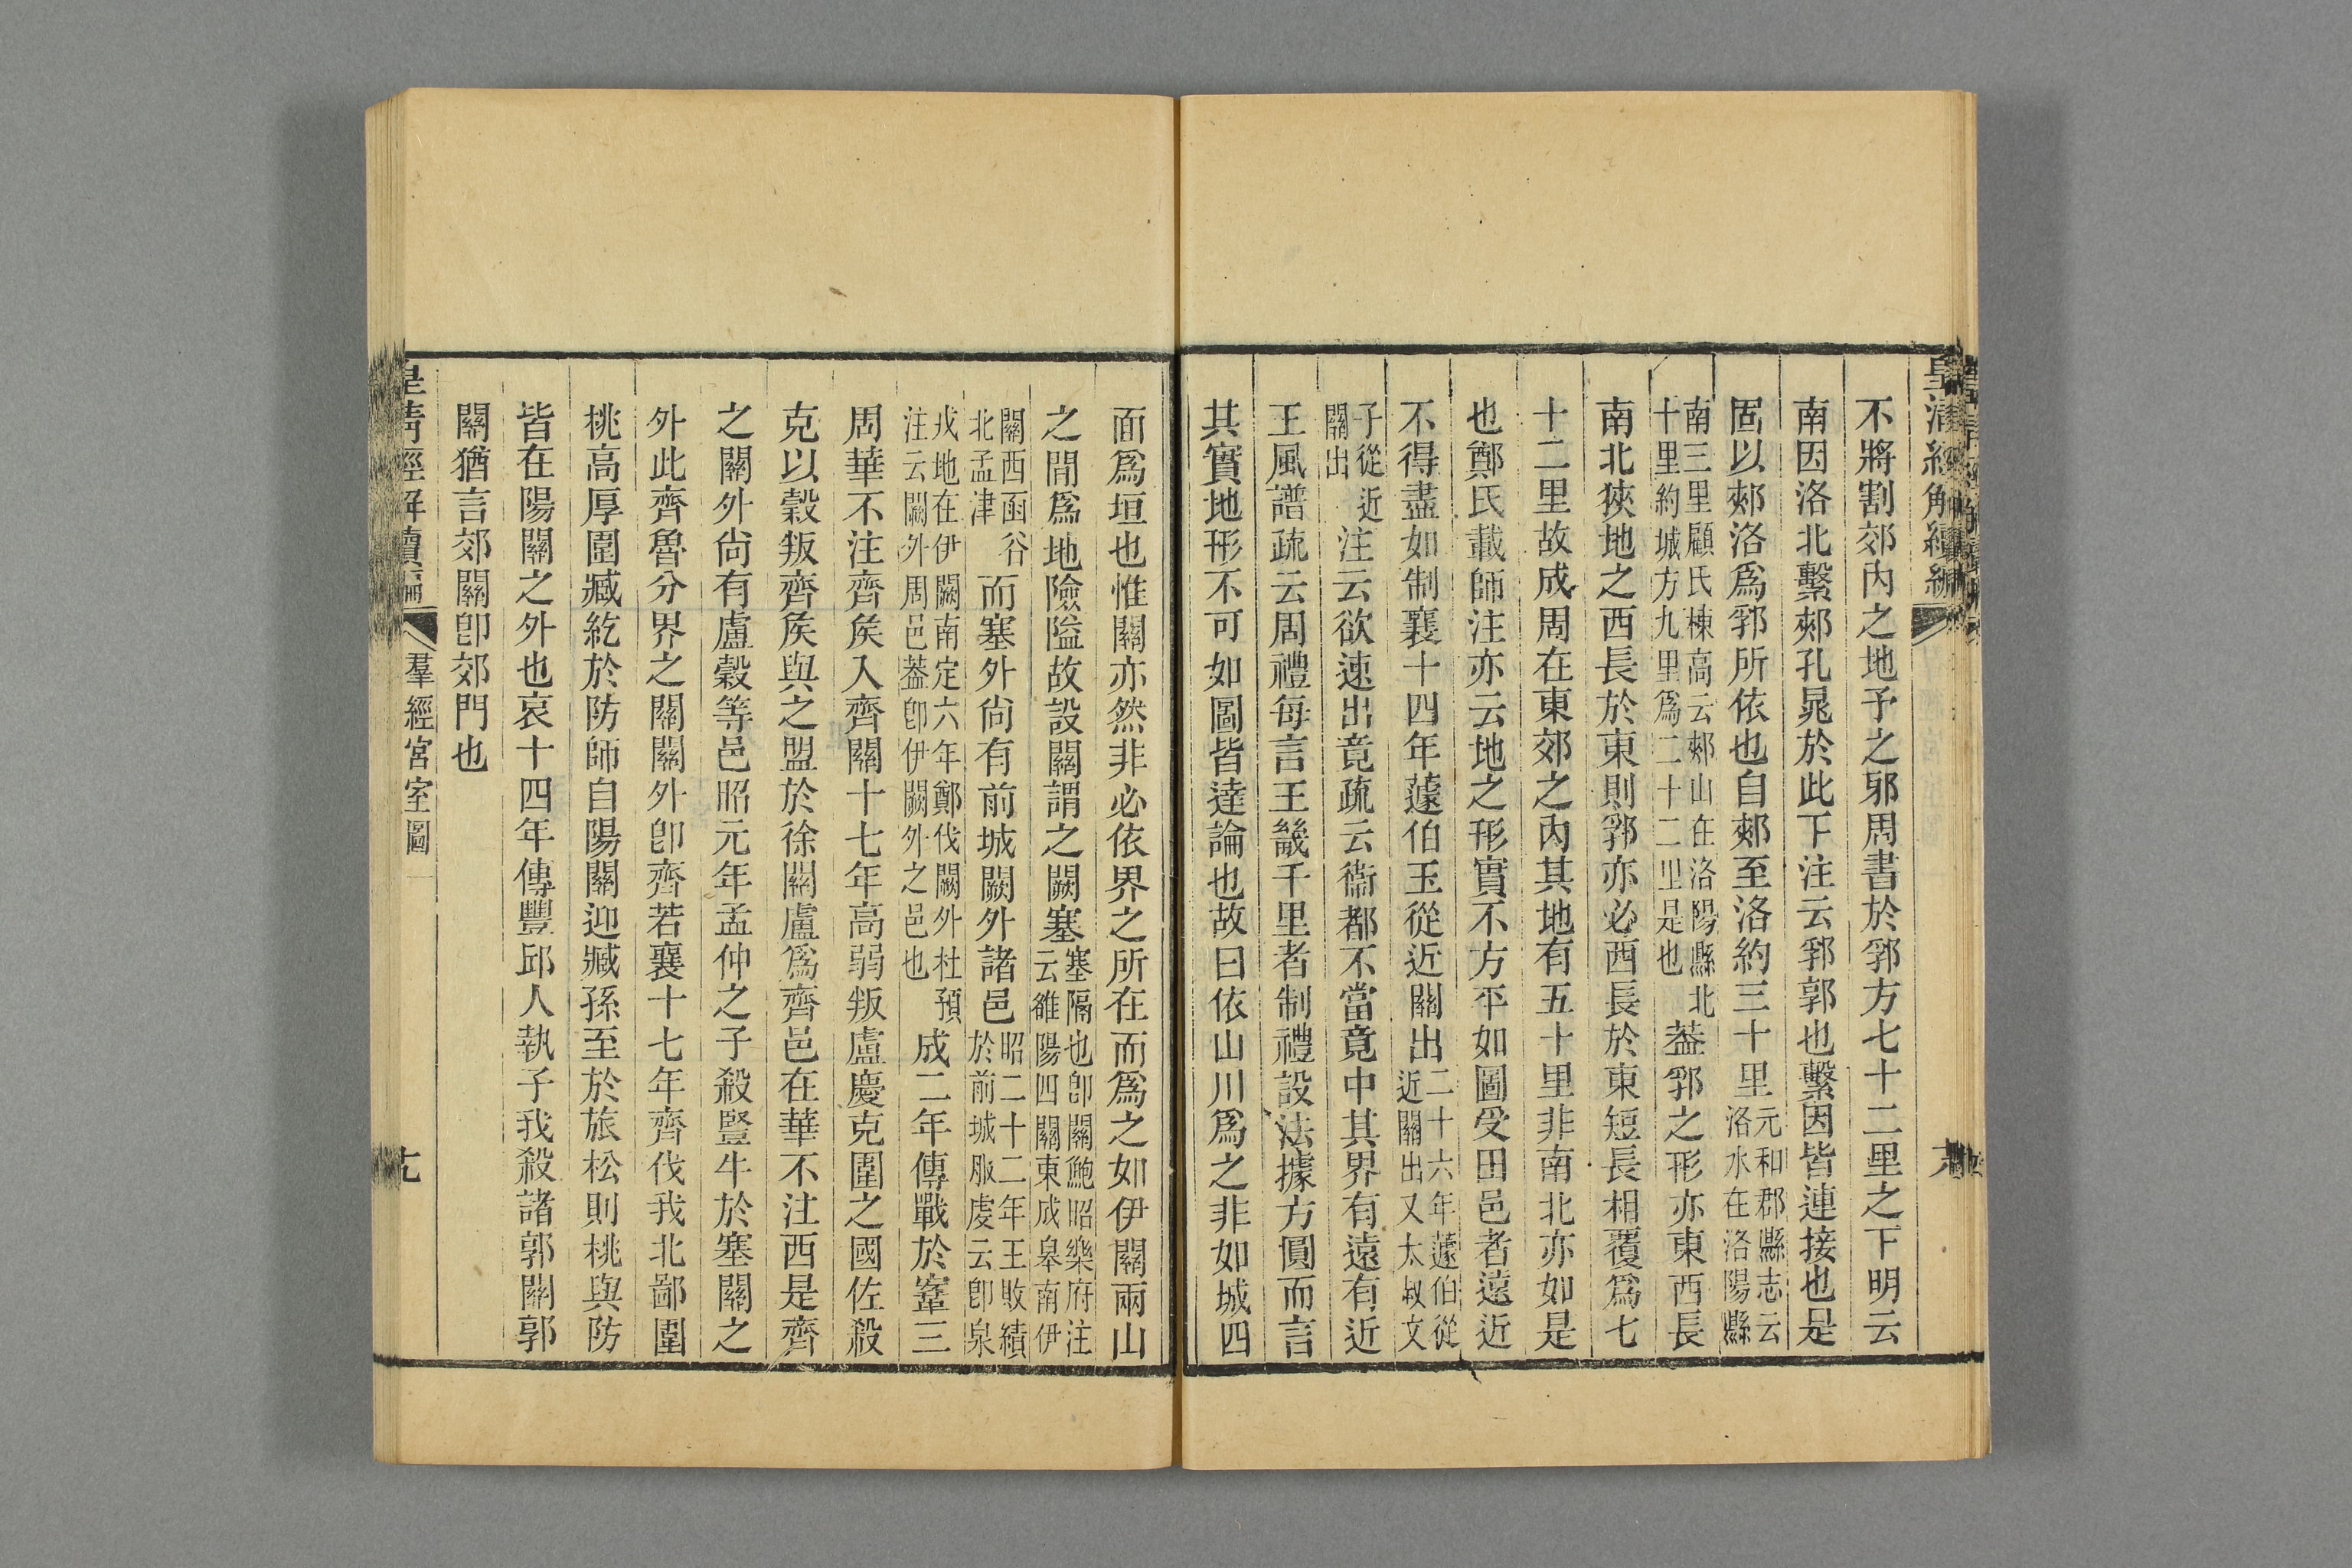 皇清經解續編
不將割郊內之地予之郛周書於郛方七十二里之下明云
南因洛北繫郟孔晁於此下注云郛郭也繫因皆連接也是
固以郟洛爲郛所依也自郟至洛約三十里元和郡縣志云洛水在洛陽縣
南三里顧氏棟高云郟山在洛陽縣北十里約城方九里爲二十二里是也葢郛之形亦東西長
南北狹地之西長於東則郛亦必西長於東短長相覆爲七
十二里故成周在東郊之內其地有五十里非南北亦如是
也鄭氏載師注亦云地之形實不方平如圖受田邑者遠近
不得盡如制襄十四年蘧伯玉從近關出二十六年蘧伯從近關出又大叔文
子從近關出注云欲速出竟疏云衞都不當竟中其界有遠有近
王風譜疏云周禮每言王畿千里者制禮設法據方圓而言
其實地形不可如圖皆達論也故曰依山川爲之非如城四
面爲垣也惟關亦然非必依界之所在而爲之如伊關兩山
之閒爲地險隘故設關謂之闕塞塞隔也卽關鮑昭樂府注云雒陽四關東成皋南伊
關西函谷北孟津而塞外尙有前城闕外諸邑昭二十二年王敗績於前城服虔云卽泉
戎地在伊闕南定六年鄭伐闕外杜預注云闕外周邑葢卽伊闕外之邑也成二年傳戰於鞌三
周華不注齊矦入齊關十七年高弱叛盧慶克圍之國佐殺
克以穀叛齊矦與之盟於徐關盧爲齊邑在華不注西是齊
之關外尙有盧穀等邑昭元年孟仲之子殺豎牛於塞關之
外此齊魯分界之關關外卽齊若襄十七年齊伐我北鄙圍
桃高厚圍臧紇於防師自陽關迎臧孫至於旅松則桃與防
皆在陽關之外也哀十四年傳豐邱人執子我殺諸郭關郭
關猶言郊關卽郊門也
皇清經解續編
羣經宮室圖一